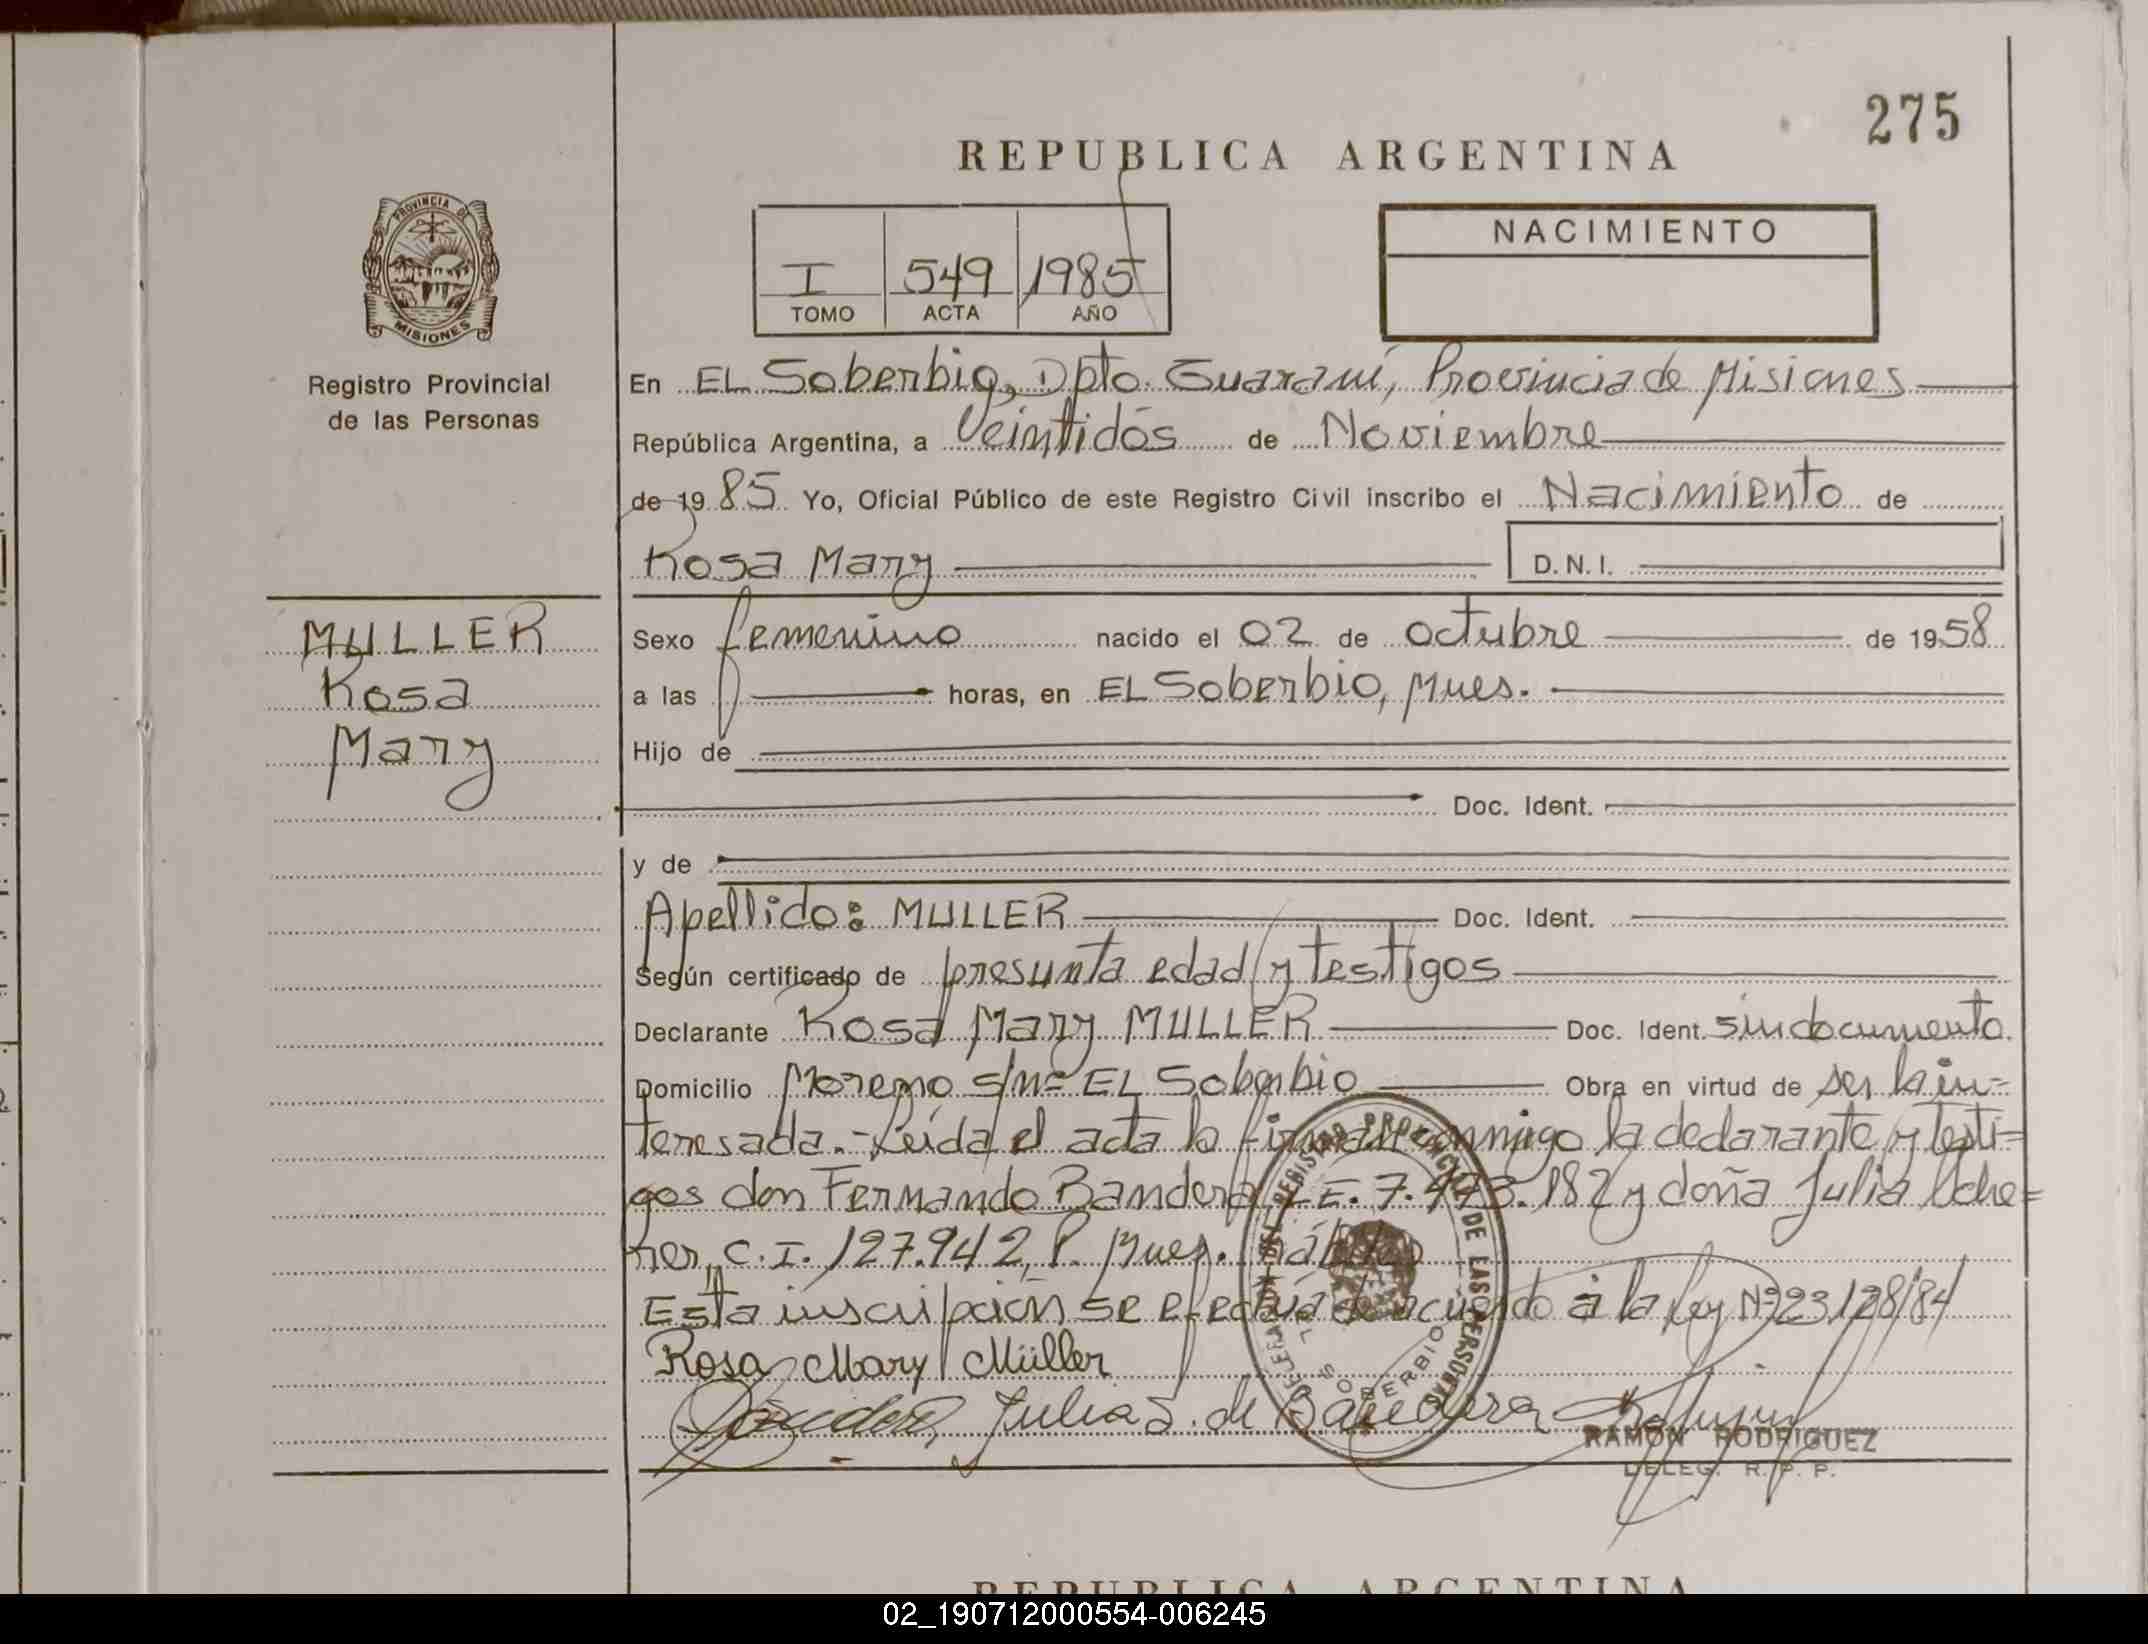 275
REPUBLICA ARGENTINA
NACIMIENTO
I 549 1985
TOMO ACTA AÑO
PROVINCIA DE
MISIONES
Registro Provincial
de las Personas
En EL Soberbio, Dpto. Guaraní, Provincia de Misiones
República Argentina, a Veintidós de Noviembre
de 1985 Yo, Oficial Público de este Registro Civil inscribo el Nacimiento de
Rosa Mary D.N.I.
MULLER
Rosa
Mary
Sexo femenino nacido el 02 de octubre de 1958
a las horas, en EL Soberbio, Mnes.
Hijo de
Doc. Ident.
y de
Apellido: MULLER Doc. Ident.
Según certificado de presunta edad y testigos
Declarante Rosa Mary MULLER Doc. Ident. sin documento.
Domicilio Moreno s/nº EL Soberbio Obra en virtud de ser la in=
teresada.- Leída el acta la firman conmigo la declarante y testi=
gos don Fernando Bandera L.E. 7.473.182 y doña Julia
ner, C.I. 127.942, P. Mnes. hábiles
Esta inscripción se efectúa de acuerdo a la ley Nº 23128/84
Rosa Mary Müller
Julia S. de Bandera
DELEGACION DEL REGISTRO PROVINCIAL DE LAS PERSONAS
EL SOBERBIO
RAMON RODRIGUEZ
DELEG. R. P. P.
REPUBLICA ARGENTINA
02_190712000554-006245